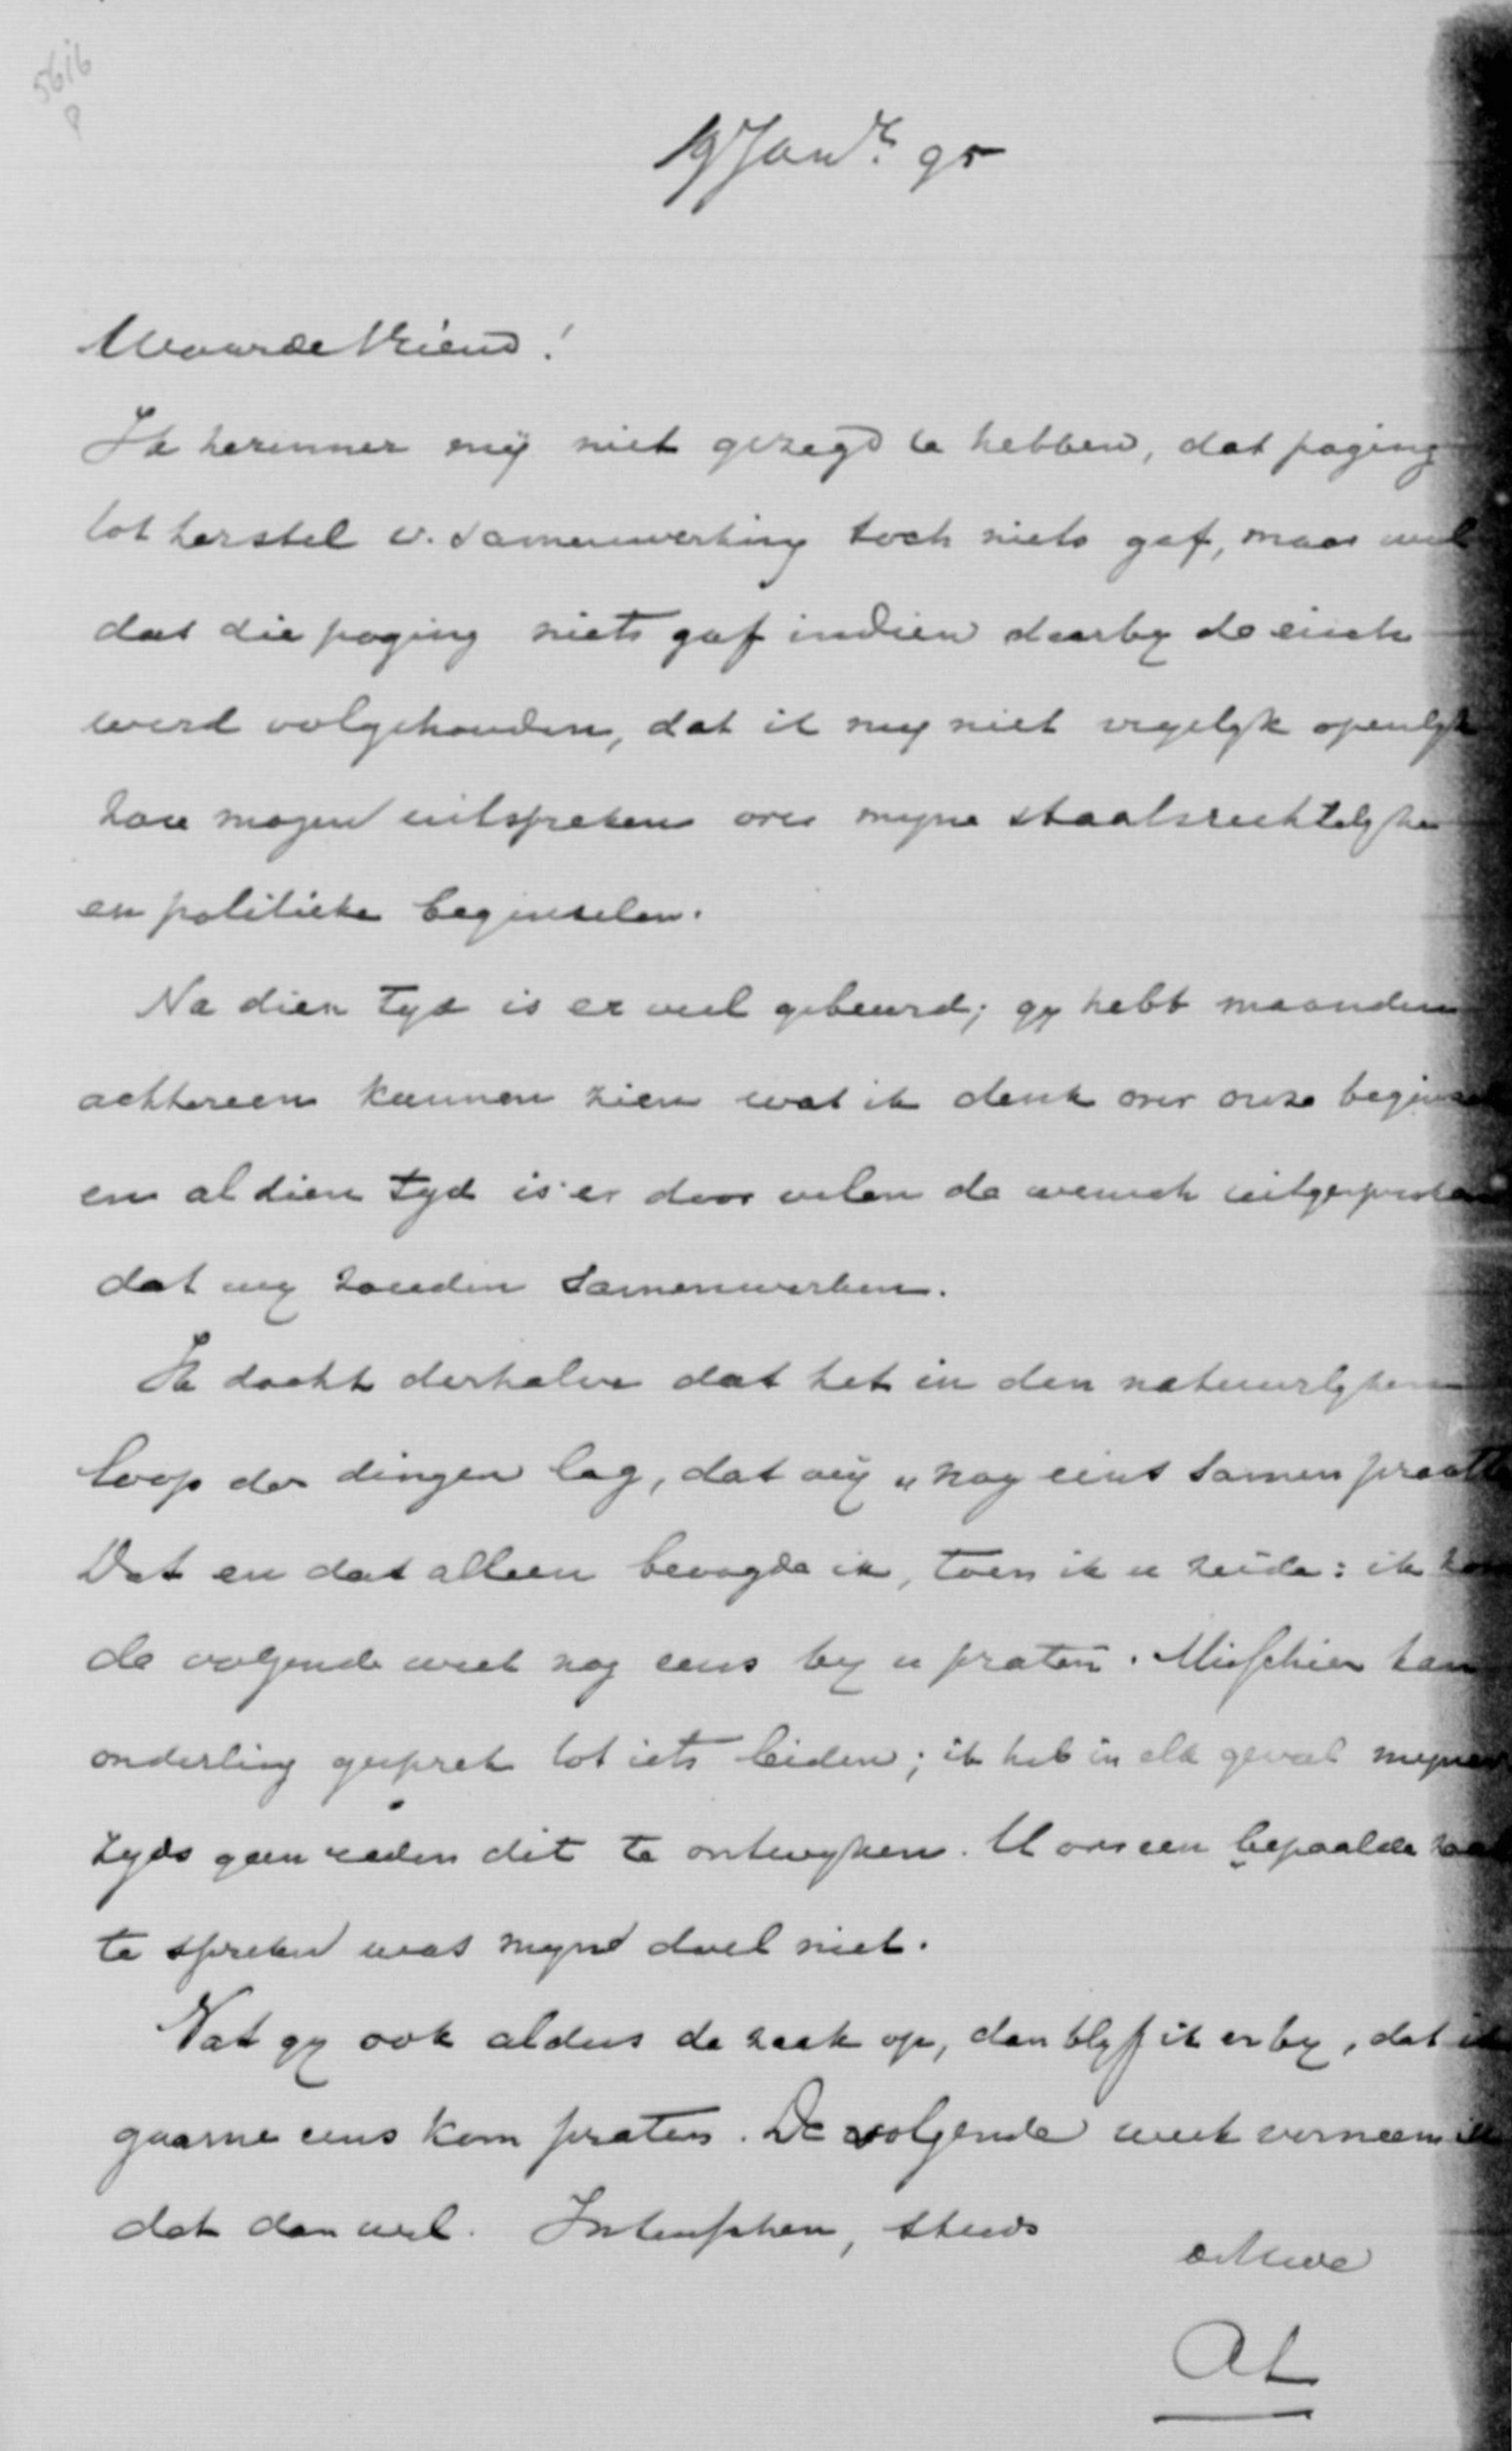 5616
19 Jan.r 95
Waarde Vriend!
Ik herinner mij niet gezegd te hebben, dat poging
tot herstel v. samenwerking toch niets gaf, maar wel
dat die poging niets gaf indien daarby de eisch
werd volgehouden, dat ik my niet vryelyk openlyk
zou mogen uitspreken over myne staatsrechtelyke
en politieke beginselen.
Na dien tyd is er veel gebeurd; gy hebt maanden
achtereen kunnen zien wat ik denk over onze
en al dien tyd is er door velen de wensch uitgesproken
dat wy zouden samenwerken.
Ik dacht derhalve dat het in den natuurlyken
loop der dingen lag, dat wij „nog eens samen
Dat en dat alleen beoogde ik, toen ik u zeide: ik
de volgende week nog eens by u praten. Misschien kan
onderling gesprek tot iets leiden; ik heb in elk geval
zyds geen reden dit te ontwyken. U over een bepaalde
te spreken was myne doel niet.
Vat gy ook aldus de zaak op, dan blyf ik er by, dat ik
gaarne eens kom praten. De volgende week verneem ik
dat dan wel. Intusschen, steeds
de Uwe
AK